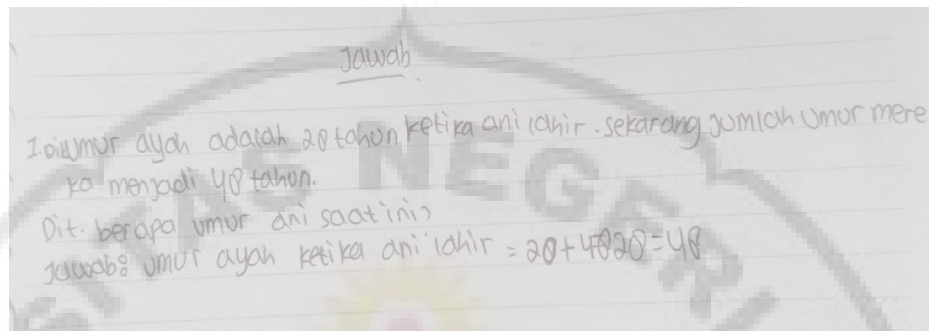 Jawab
1. Dik umur ayah adalah 28 tahun ketika ani lahir. sekarang jumlah umur mere
ka menjadi 48 tahun.
Dit. berapa umur ani saat ini?
Jawab: umur ayah ketika ani lahir = 28 + 4828 = 48
SITAS NEGERI